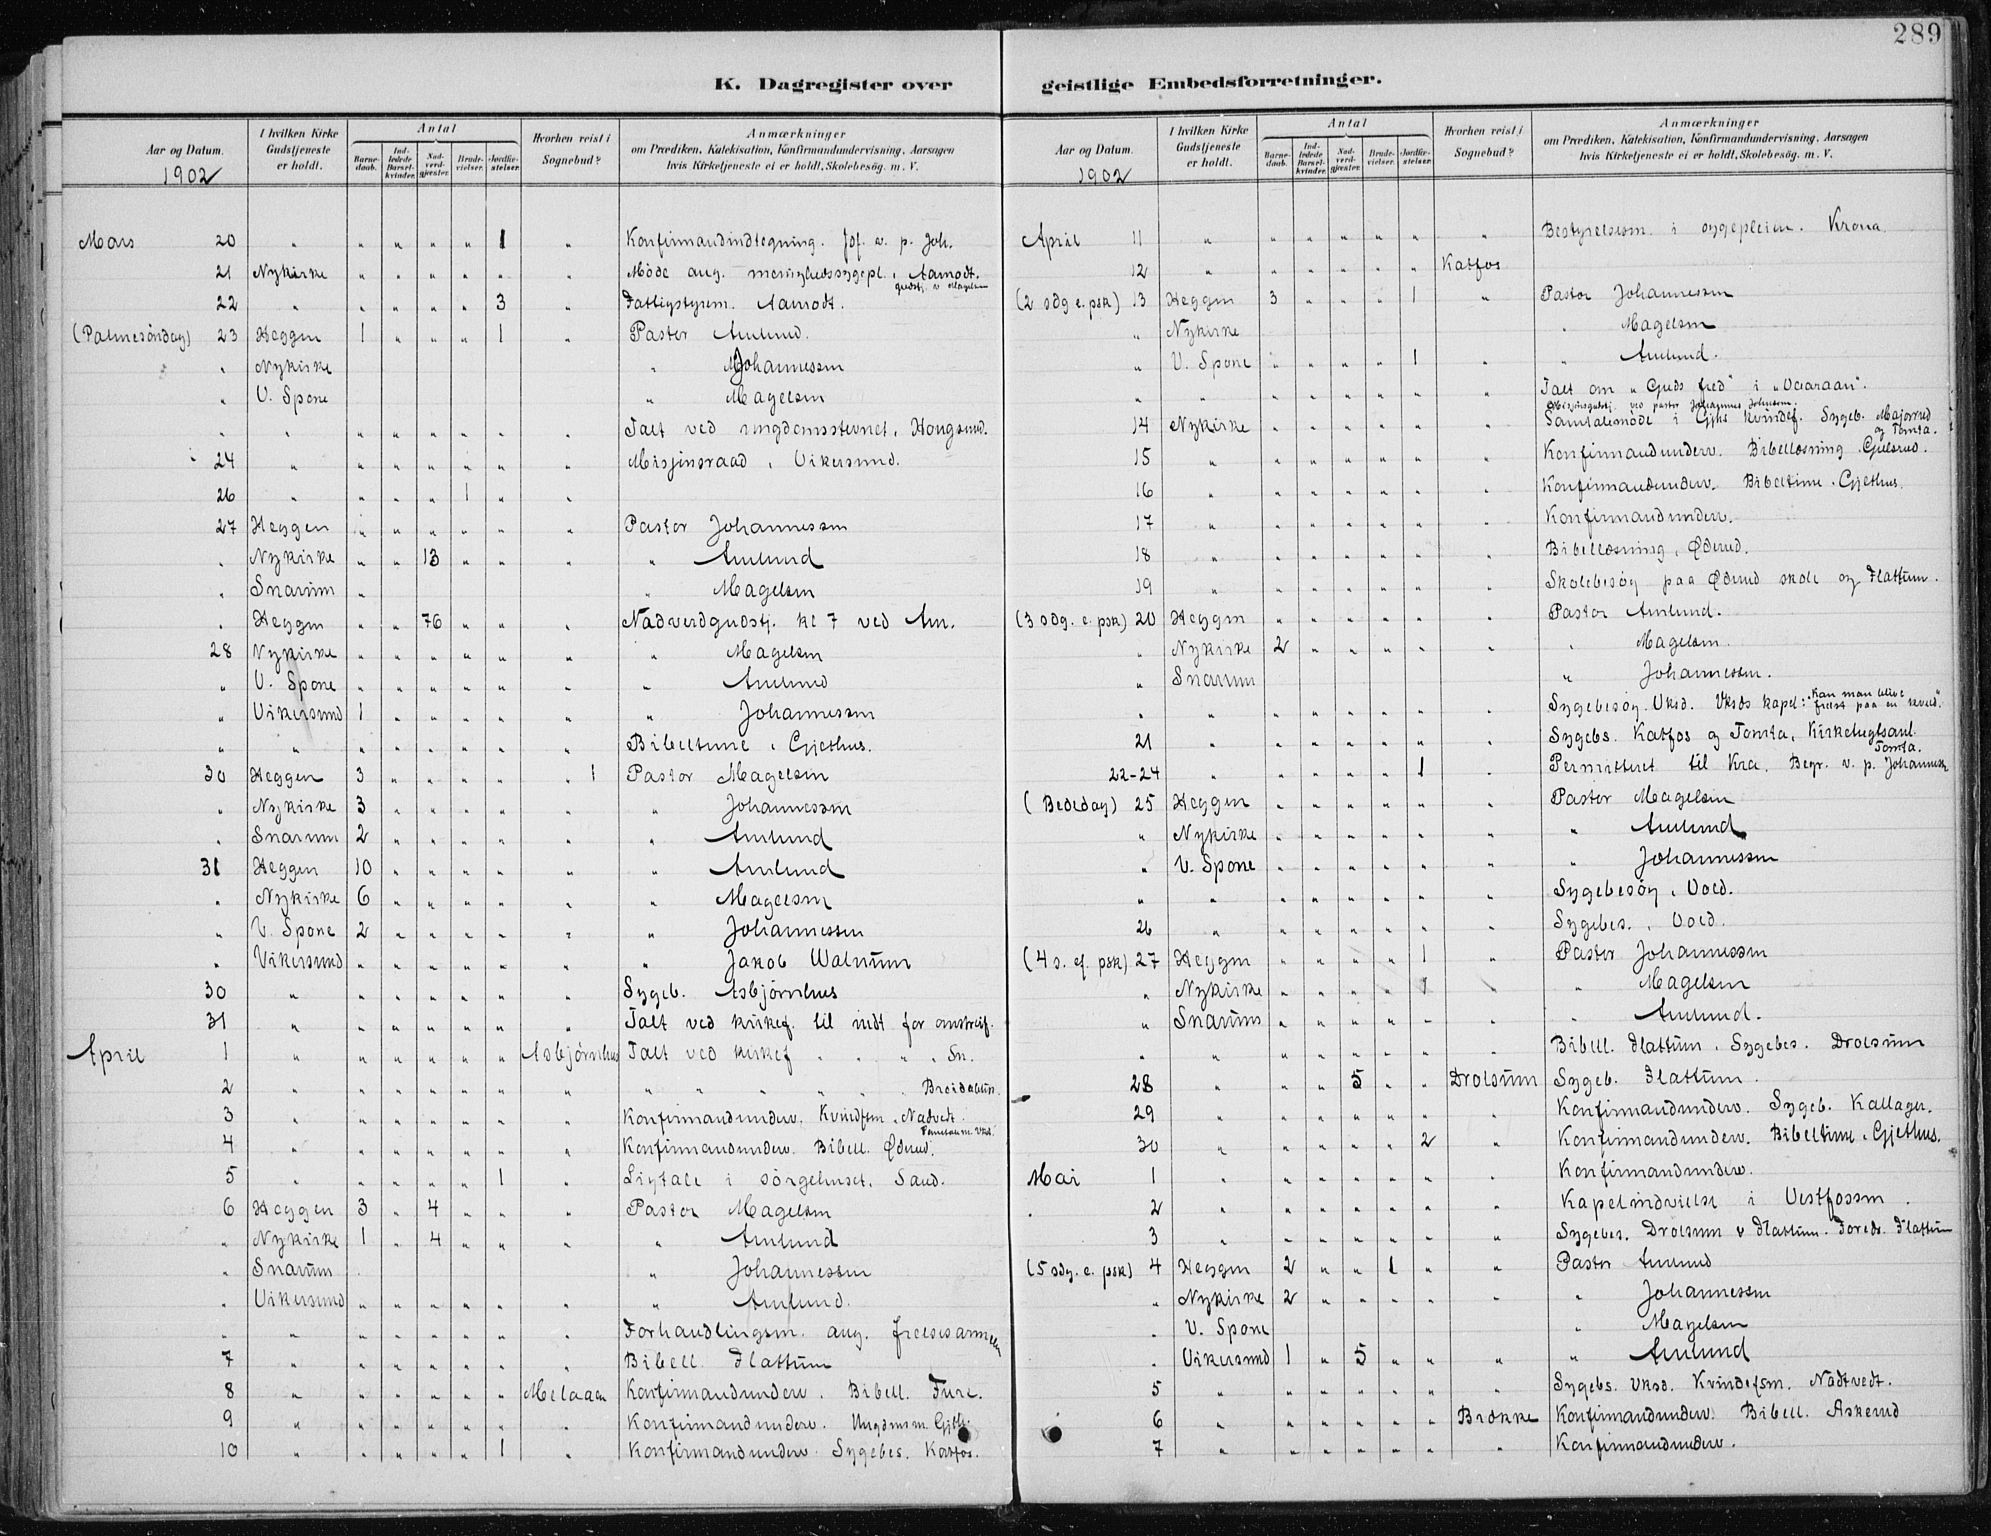 289
K. Dagregister over geistlige Embedsforretninger.
Aar og Datum. | I hvilken Kirke Gudstjeneste er holdt. | Antal | Barnedaab. | Indledede Barselkvinder. | Nadverdgjæster. | Brudevielser. | Jordfæstelser. | Hvorhen reist i Sognebud? | Anmærkninger om Prædiken, Katekisation, Konfirmandundervisning, Aarsagen hvis Kirketjeneste ei er holdt, Skolebesøg. m. V.
1902
Mars 20 " " " " " 1 " Konfirmandindtegning. Jof. v. p. Joh.
21 Nykirke " " " " " " Møde ang. menighedssygepl. i Aamodt.
gudstj. v Magelsen
22 " " " " " 3 " Fattigstyrem. Aamodt.
(Palmesøndag) 23 Heggen 1 " " " 1 " Pastor Amlund.
" Nykirke " Johannessen
" V. Spone " Magelsen
" " " " " " " " Talt ved ungdomsstevnet i Hougsund.
24 " " " " " " " Misjonsraad i Vikersund.
26 " " " " 1 " "
27 Heggen " " " " " " Pastor Johannessen
" Nykirke " " 13 " " " " Amlund
" Snarum " " Magelsen
" Heggen " " 76 " " " Nadverdgudstj. kl 7 ved Am.
28 Nykirke " " " " " " " Magelsen
" V. Spone " " " " " " " Amlund
" Vikersund 1 " " " " " " Johannessen
" " " " " " " " Bibeltime i Gjethus.
30 Heggen 3 " " " " " 1 Pastor Magelsen
" Nykirke 3 " " " " " " Johannessen
" Snarum 2 " " " " " " Amlund
31 Heggen 10 " " " " " " Amlund
" Nykirke 6 " " " " " " Magelsen
" V. Spone 2 " " " " " " Johannessen
" Vikersund " " " " " " " Jakob Walnum
30 " " " " " " " Sygeb. Asbjørnhus
31 " " " " " " " Talt ved kirkef. til indt for
April 1 " " " " " " Asbjørnhus Talt ved kirkef " " " " Sn.
2 " " " " " " " " " " " " "
3 " " " " " " " Konfirmandunderv. Kvindefsm. i Nadvedt.
4 " " " " " " " Konfirmandunderv. Bibell. Øderud.
5 " " " " " 1 " Ligtale i sørgehuset. Sand.
6 Heggen 3 " 4 " " " Pastor Magelsen
" Nykirke 1 " 4 " " " " Amlund
" Snarum " Johannessen
" Vikersund " " " " " " " Amlund.
" " " " " " " " Forhandlingsm. ang. frelsesarmeen
7 " " " " " " " Bibell. Flattum
8 " " " " " " Melaaen Konfirmandunderv. Bibell. Fure.
9 " " " " " " " Konfirmandunderv. Ungdomsm. Gjeth.
10 " " " " " 1 " Konfirmandunderv. Sygebes. Katfos.
Aar og Datum. | I hvilken Kirke Gudstjeneste er holdt. | Antal | Barnedaab. | Indledede Barselkvinder. | Nadverdgjæster. | Brudevielser. | Jordfæstelser. | Hvorhen reist i Sognebud? | Anmærkninger om Prædiken, Katekisation, Konfirmandundervisning, Aarsagen hvis Kirketjeneste ei er holdt, Skolebesøg. m. V.
1902
April 11 " " " " " " " Bestyrelsesm. i sygepleien. Krona
12 " " " " " " Katfos
(2 sdg e. psk) 13 Heggen 3 " " " 1 " Pastor Johannessen
" Nykirke " Magelsen
" V. Spone " " " " 1 " " Amlund.
" " " " " " " " Talt om "Guds fred" i "Vaaraan".
Misjonsgudstj. ved pastor Johannes Johnson.
14 Nykirke " " " " " " Samtalemøde i Gjks kvindef. Sygeb. Majorud
og Tomta.
15 " " " " " " " Konfirmandunderv. Bibellæsning Gulsrud.
16 " " " " " " " Konfirmandunderv. Bibeltime i Gjethus.
17 " " " " " " " Konfirmandunderv.
18 " " " " " " " Bibellæsning i Øderud.
19 " " " " " " " Skolebesøg paa Øderud skole og Flattum.
(3 sdg. e. psk) 20 Heggen " " " " " " Pastor Amlund.
" Nykirke 2 " " " " " " Magelsen.
" Snarum " Johannessen.
" " " " " " " " Sygebesøg. Vksd. Vksds kapel: "Kan man blive
frelst paa en kveld."
21 " " " " " " " Sygebs. Katfos og Tomta. Kirketugtsanl.
Tomta.
22-24 " " " " " 1 " Permitteret til Kra. Begr. v. p. Johannessen
(Bededag) 25 Heggen " " " " " " Pastor Magelsen
" Nykirke " " " " " " " Amlund
" V. Spone " " " " " " " Johannessen
" " " " " " " " Sygebesøg i Vold.
26 " " " " " " " Sygebes. i Vold.
(4 s. ef. psk) 27 Heggen " " " " 1 " Pastor Johannessen
" Nykirke " " " " 1 " " Magelsen
" Snarum " " " " " " " Amlund.
" " " " " " " " Bibell. Flattum. Sygebes. Drolsum
28 " " " 5 " " Drolsum Sygeb. Flattum.
29 " " " " " " " Konfirmandunderv. Sygeb. Kallager.
30 " " " " " 2 " Konfirmandunderv. Bibeltime i Gjethus.
Mai 1 " " " " " " " Konfirmandunderv.
2 " " " " " " " Kapelindvielse i Vestfossen.
3 " " " " " " " Sygebes. Drolsum & Flattum. Foreds. Flattum
(5 sdg. e. psk) 4 Heggen 2 " " 1 " " Pastor Amlund
" Nykirke 2 " " " " " " Johannessen
" V. Spone " Magelsen
" Vikersund 1 " 5 " " " " Amlund
5 " " " " " " " Sygebs. Vksd. Kvindefsm. Nadtvedt.
6 " " " " " " Brokke Konfirmandunderv. Bibell. Askerud
7 " " " " " " " Konfirmandunderv.